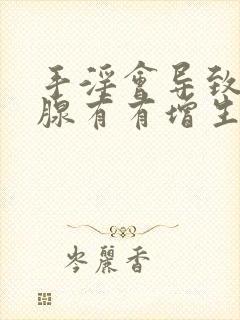 手淫會导致
腺有有增生
岑麗香